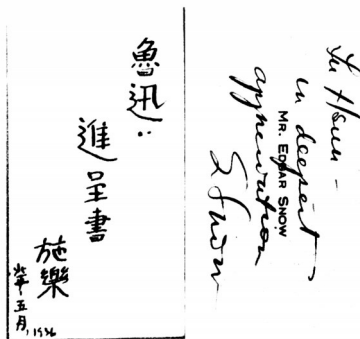 魯迅:
進呈書
施樂
五月, 1936
Lu Hsun -
in deepest
MR. EDGAR SNOW
appreciation
E Snow